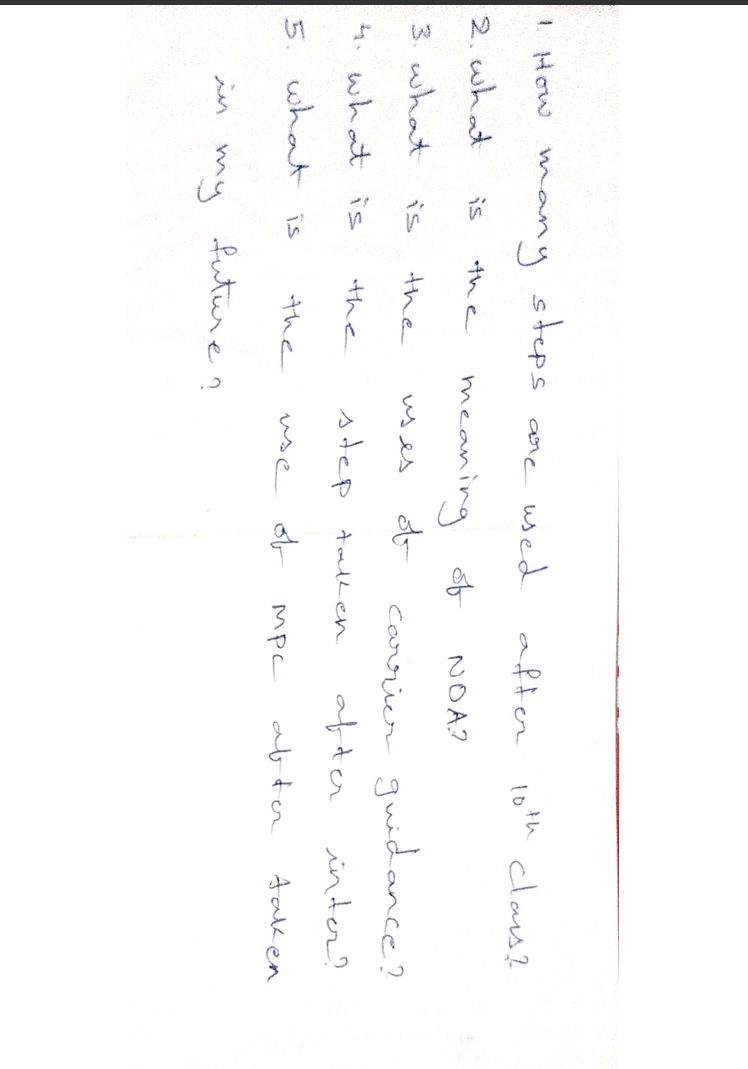 1. How many steps are used after 10th class?
2. what is the meaning of NDA?
3. what is the uses of carrier guidance?
4. what is the step taken after inter?
5. what is the use of MPC after taken
in my future?